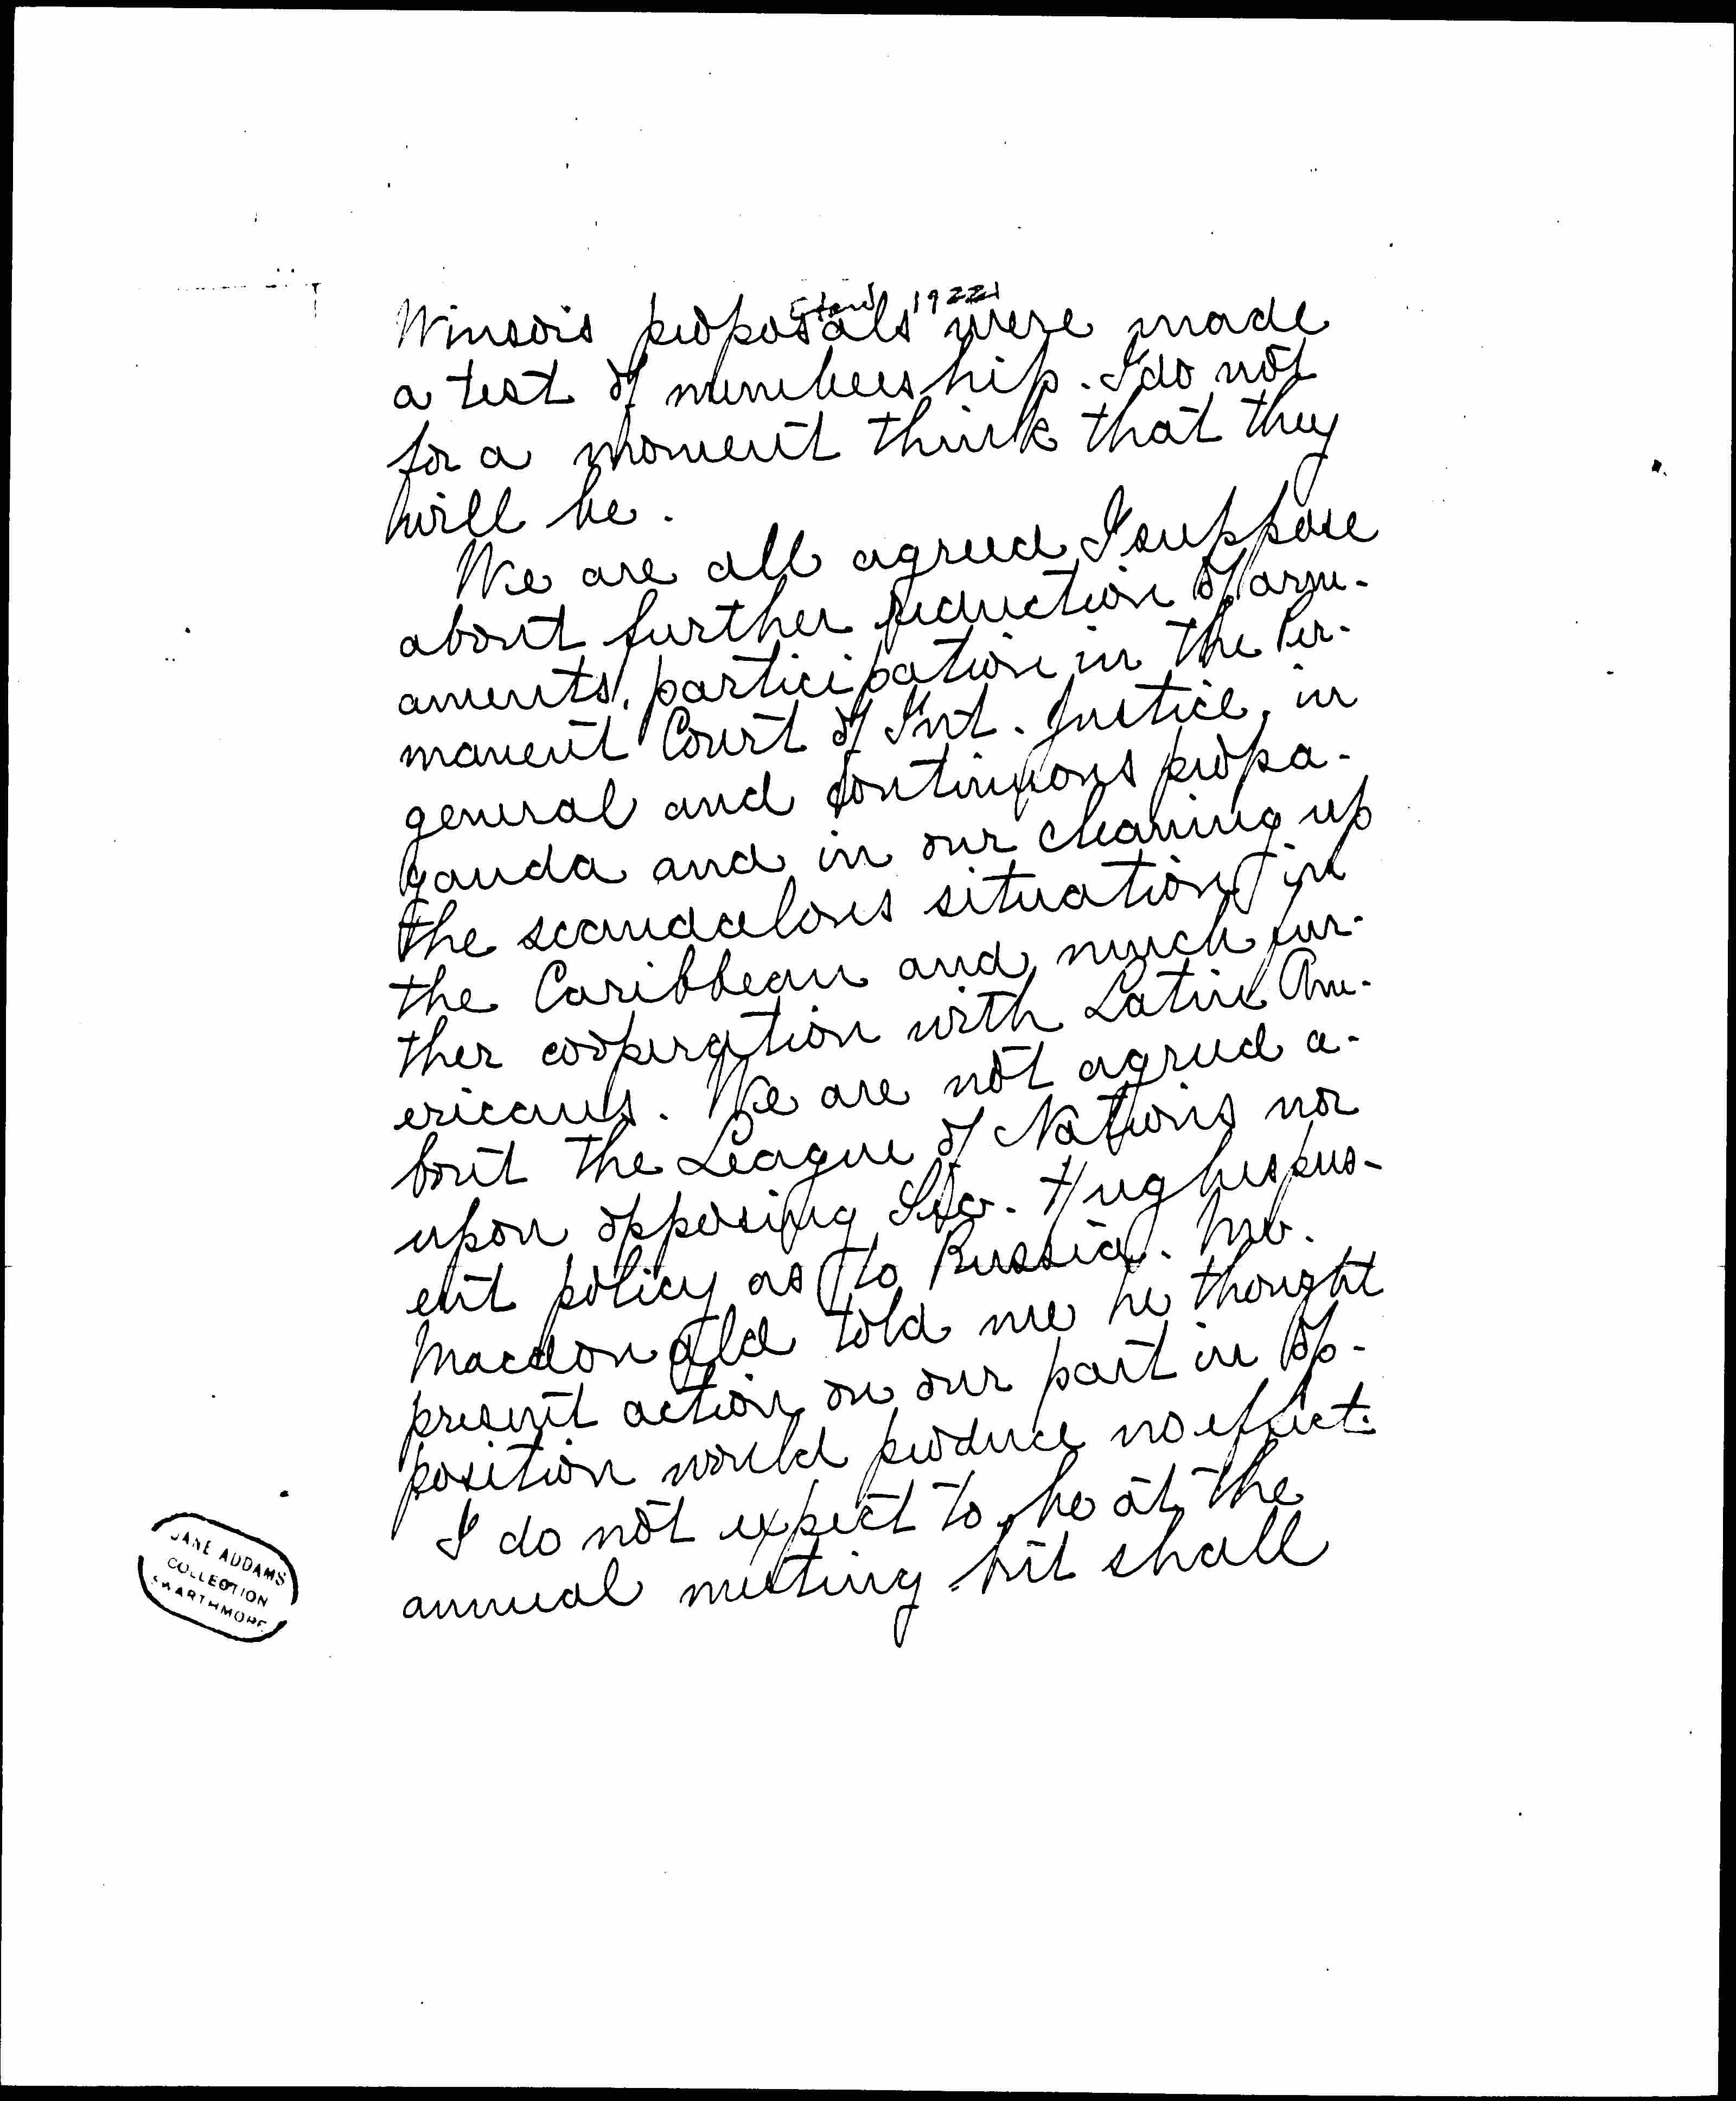 1922]
Winsor's proposals were made
a test of membership. I do not
for a moment think that they
will be.
We are all agreed I suppose
about further reduction of arm-
aments, participation in the Per-
manent Court of Int. Justice, in
general and continuous propa-
ganda and in our cleaning up
the scandalous situation in
the Caribbean and much fur-
ther cooperation with Latin Am-
ericans. We are not agreed a-
bout the League of Nations nor
upon opposing Sec. Hughes pres-
ent policy as to Russia. Mr.
Macdonald told me he thought
present action on our part in op-
position would produce no effect.
I do not expect to be at the
annual meeting but shall
JANE ADDAMS
COLLECTION
SWARTHMORE